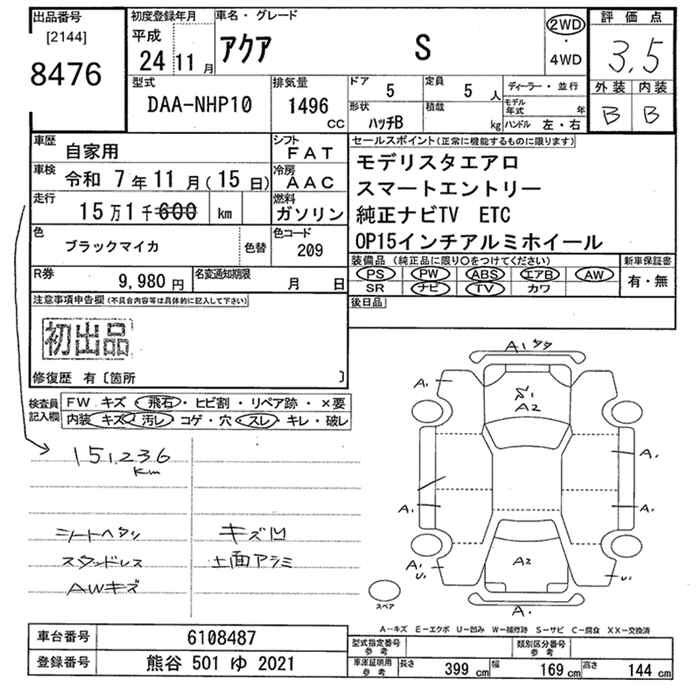 出品番号
[2144]
8476
初度登録年月
平成
24 11月
車名・グレード
アクア S
2WD
・
4WD
評価点
3.5
外装 内装
B B
型式
DAA-NHP10
排気量
1496
CC
ドア
5
定員
5 人
形状
ハッチB
積載
kg
ディーラー・並行
モデル年式 年
ハンドル 左・右
車歴 自家用
シフト FAT
車検 令和 7年11月(15日)
冷房 AAC
走行 15万1千600 km
燃料 ガソリン
色 ブラックマイカ 色替
色コード 209
R券 9,980円
名変通知期限 月 日
セールスポイント(正常に機能するものに限ります)
モデリスタエアロ
スマートエントリー
純正ナビTV ETC
OP15インチアルミホイール
装備品 (純正品に限り○をつけてください)
PS PW ABS エアB AW
SR ナビ TV カワ
新車保証書
有・無
後日品
注意事項申告欄(不具合内容等は具体的に記入して下さい)
初出品
修復歴 有〔箇所 〕
検査員記入欄
FW キズ・飛石・ヒビ割・リペア跡・×要
内装 キズ・汚レ・コゲ・穴・スレ・キレ・破レ
151,236
km
シートヘタリ キズ凹
スタッドレス 上面アラミ
AWキズ
A1
A1
A2
A1
A1
A1
A2
A1
U1
U1
A1
スペア
A-キズ E-エクボ U-凹み W-補修跡 S-サビ C-腐食 XX-交換済
車台番号 6108487
登録番号 熊谷 501 ゆ 2021
型式指定番号
参考
類別区分番号
参考
車庫証明用
参考
長さ 399 cm 幅 169 cm 高さ 144 cm